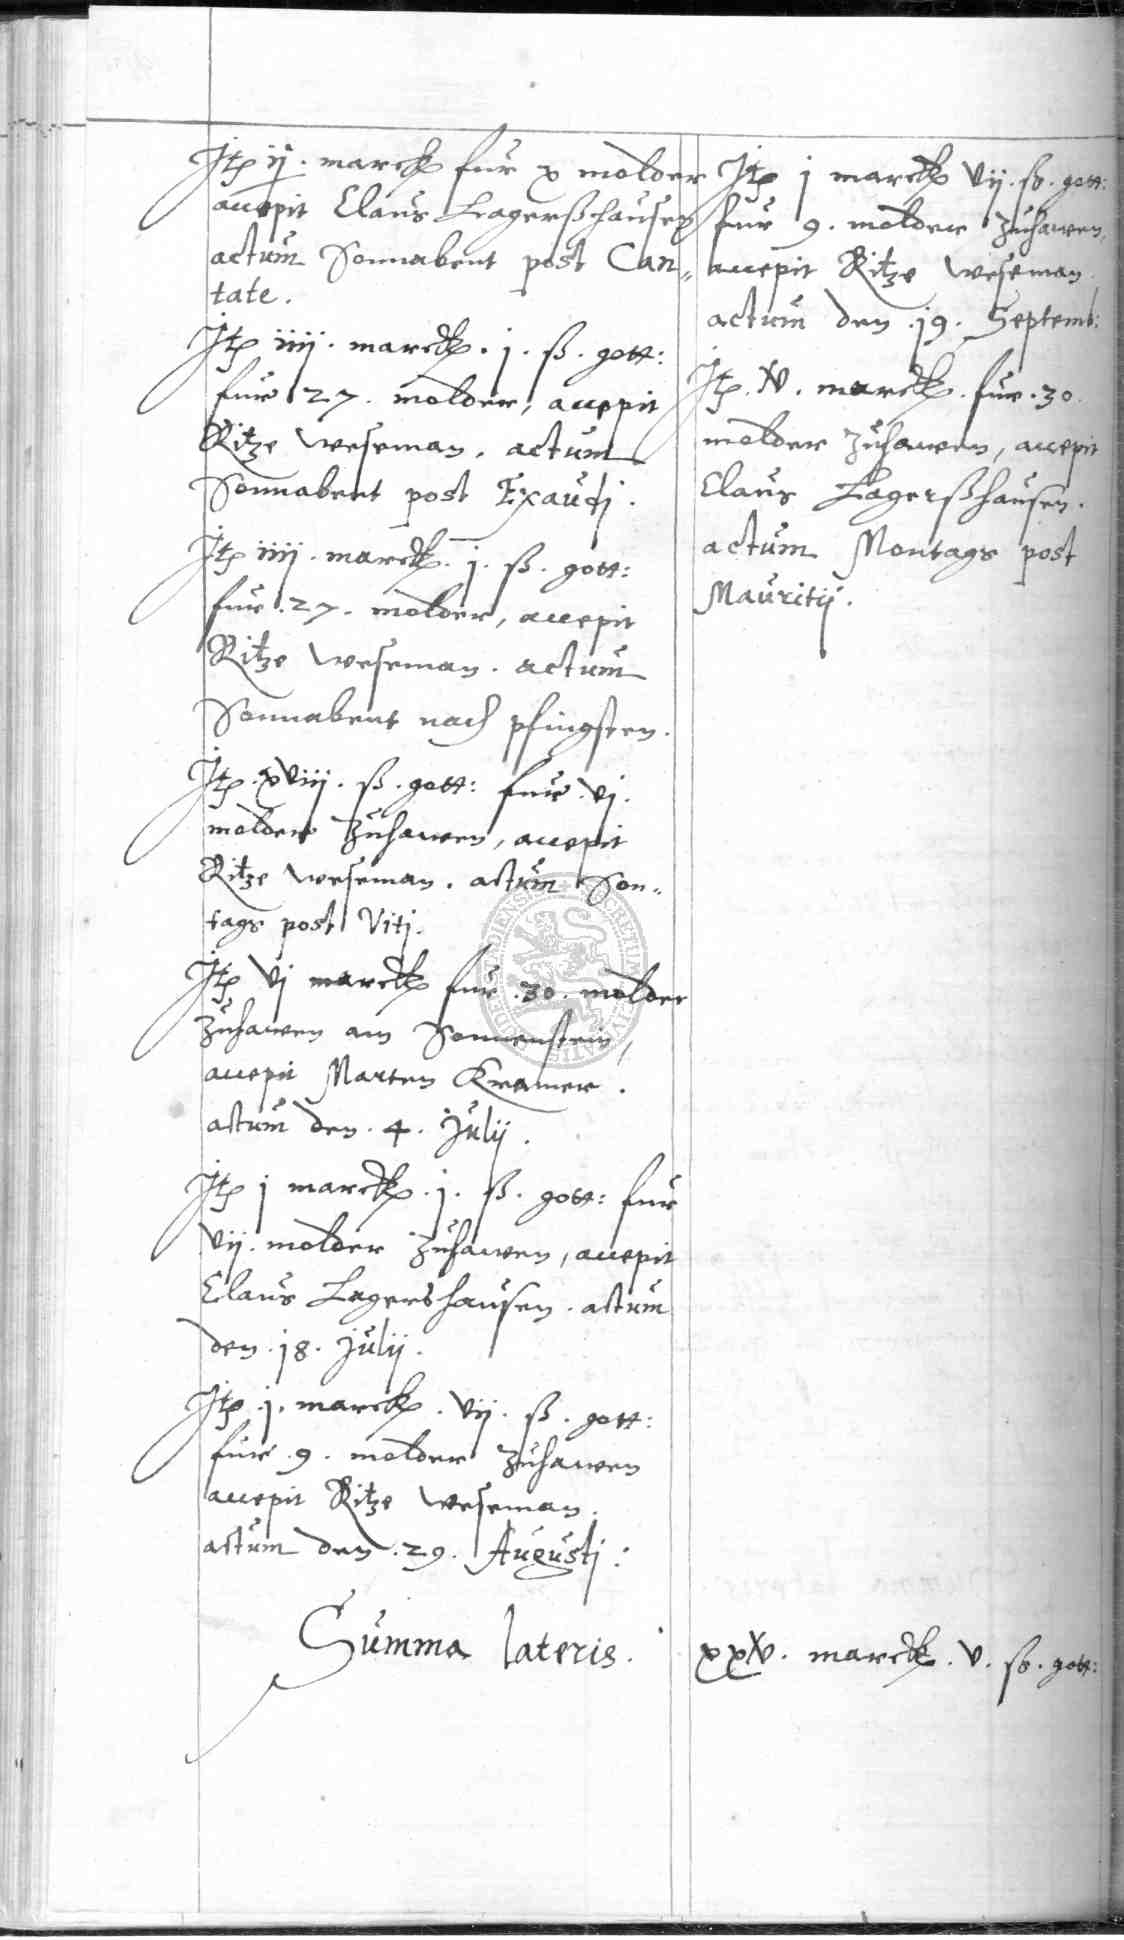 Itꝫ ij. marck fur x molder
accepit Claus Lagerßhausen
actum Sonnabent post Can„
tate.
Itꝫ iiij. marck. j. ß. gott:
fur 27. molder, accepit
Ritze Weseman. actum
Sonnabent post Exaudj.
Itꝫ iiij. marck. j. ß. gott:
fur. 27. molder, accepit
Ritze Weseman. actum
Sonnabent nach pfingsten.
Itꝫ. xviij. ß. gott: fur. vj.
molder zuhawen, accepit
Ritze Weseman. actum Son„
tags post Vitj.
Itꝫ vj marck fur. 30. molder
zuhawen am Sonnenstein,
accepit Marten Kramer.
actum den. 4. Julij.
Itꝫ j marck. j. ß. gott: fur
vij. molder zuhawen, accepit
Claus Lagershausen. actum
den. j8. Julij.
Itꝫ. j. marck. vij. ß. gott:
fur. 9. molder zuhawen
accepit Ritze Weseman.
actum den. 29. Augustj:
Itꝫ j marck vij. ß. gott:
fur 9. molder zuhawen,
accepit Ritze Weseman.
actum den. j9. Septemb:
Itꝫ. v. marck. fur. 30.
molder zuhawen, accepit
Claus Lagerßhausen.
actum Montags post
Mauritij.
Summa lateris. xxv. marck. v. ß. gott:
SECRETUM CIVITATIS